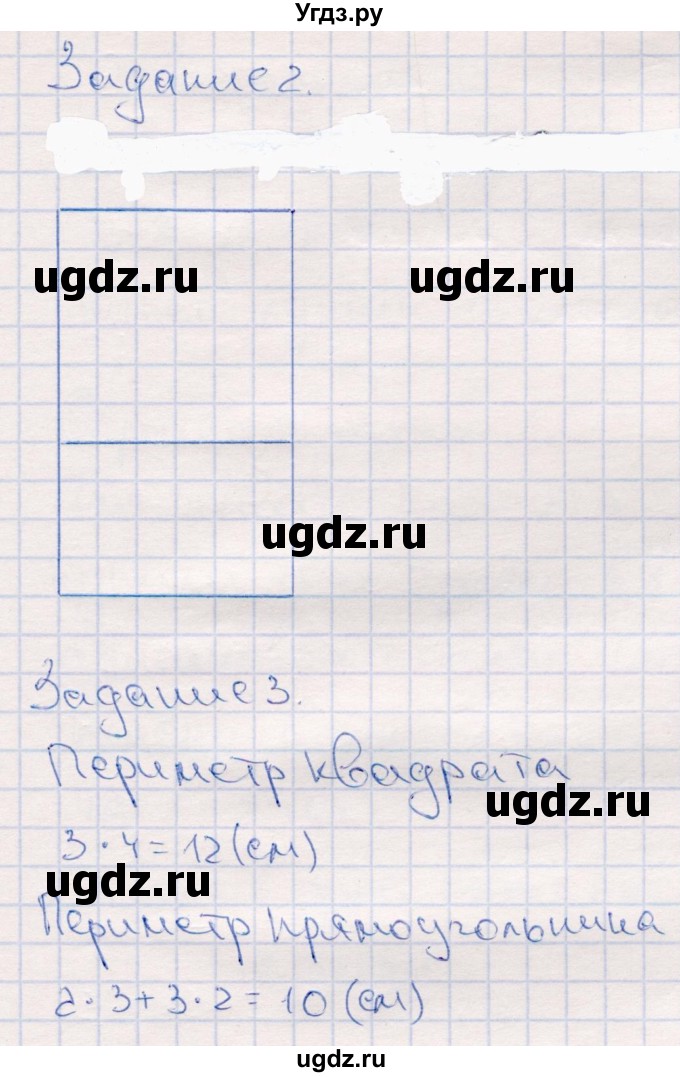 Угдз.ру
Задание 2.
ugdz.ru ugdz.ru
ugdz.ru
Задание 3.
Периметр квадрата
ugdz.ru
3·4=12(см)
ugdz.ru
Периметр прямоугольника
2·3+3·2=10(см)
ugdz.ru